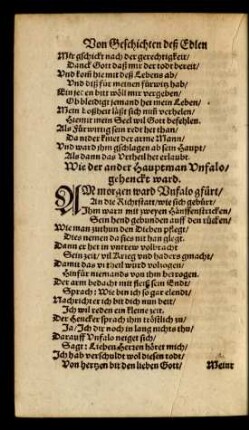 Von Geschichten deß Edlen
Mir gschicht nach der gerechtigkeit/
Danck Gott daß mir der todt bereit/
Vnd kom̃ hie mit deß Lebens ab/
Vnd diß für meinen fürwitz hab/
Ein jeden bitt wöll mir vergeben/
Ob bleidigt jemand her mein Leben/
Mein boßheit läßt sich nuß verhelen/
Hiemit mein Seel wil Gott befehlen.
Als Fürwittig sein redt het than/
Da nider kniet der arme Mann/
Vnd ward jhm gschlagen ab sein Haupt/
Als dann das Vrtheil her erlaubt.
Wie der ander Hauptman Vnfalo/
gehenckt ward.
AM morgen ward Vnfalo gfürt/
An die Richtstatt/wie sich gebürt/
Jhm warn mit zweyen Hänffenstricken/
Sein hend gebunden auff den rücken/
Wie man zuthun den Dieben pflegt/
Dies nemen da sies nit han gliegt.
Dann er het in vntrew volbracht
Sein zeit/ vil Krieg vnd haders gmacht/
Damit das vrtheil wurd volzogen/
Hinfür niemands von jhm betrogen.
Der arm bedacht mit fleiß sein Endt/
Sprach: Wie bin ich so gar elendt/
Nachrichter ich bit dich nun beit/
Jch wil reden ein kleine zeit.
Der Hencker sprach jhm tröstlich zu/
Ja/ Jch dir noch in lang nichts thu/
Darauff Vnfalo neiget sich/
Sagt: Lieben Herren höret mich/
Jch hab verschuldt wol diesen todt/
Von hertzen bit den lieben Gott/
Meint